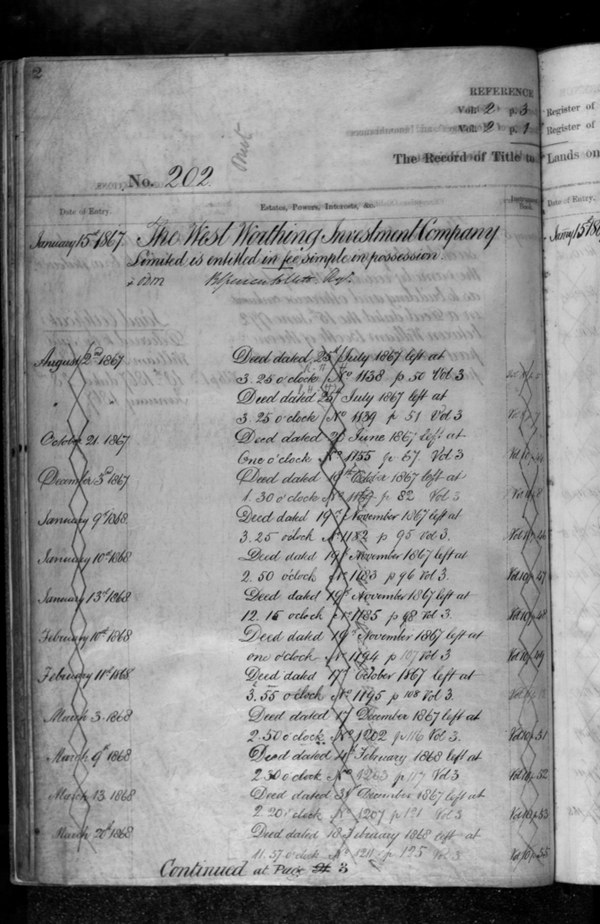 2
REFERENCE
Vol. 2 p. 3
Register of
Vol. 2 p. 1
Register of
The Record of Title to Lands on
No. 202
Date of Entry.
Estates, Powers, Interests, &c.
Date of Entry.
January 15th 1867. The West Worthing Investment Company
Limited is entitled in fee simple in possession
August 2nd 1867 Deed dated 25th July 1867 left at
3.25 o'clock No 1138 p 50 Vol 3
" Deed dated 25 July 1867 left at
3 25 o'clock No 1139 p 51 Vol 3
October 21. 1867 Deed dated 20 June 1867 left at
One o'clock No 1155 p 67 Vol 3
December 3rd 1867 Deed dated 19th October 1867 left at
1.30 o'clock No p 82 Vol 3
January 9th 1868. Deed dated 19th November 1867 left at
3.25 o'clock No 1182 p 95 Vol 3.
January 10th 1868 Deed dated 19th November 1867 left at
2.50 o'clock No 1183 p 96 Vol 3. Vol 10 p 47
January 13th 1868 Deed dated 19th November 1867 left at
12.15 o'clock No 1185 p 98 Vol 3. Vol 10 p 48
February 10th 1868 Deed dated 19th November 1867 left at
one o'clock No 1194 p 107 Vol 3 Vol 10 p 49
February 11th 1868 Deed dated 17th October 1867 left at
3.55 o'clock No 1195 p 108 Vol 3.
March 3 1868 Deed dated 17 December 1867 left at
2.50 o'clock No 1202 p 116 Vol 3. Vol 10 p 51
March 9th 1868 Deed dated 4th February 1868 left at
2.30 o'clock No 1203 p 117 Vol 3 Vol 10 p 52
March 13 1868 Deed dated 31 December 1867 left at
2.20 o'clock No 1207 p 121 Vol 3 Vol 10 p 53
March 20th 1868 Deed dated 18 February 1868 left at
11.57 o'clock No 1211 p 125 Vol 3 Vol 10 p 55
Continued at Page 3